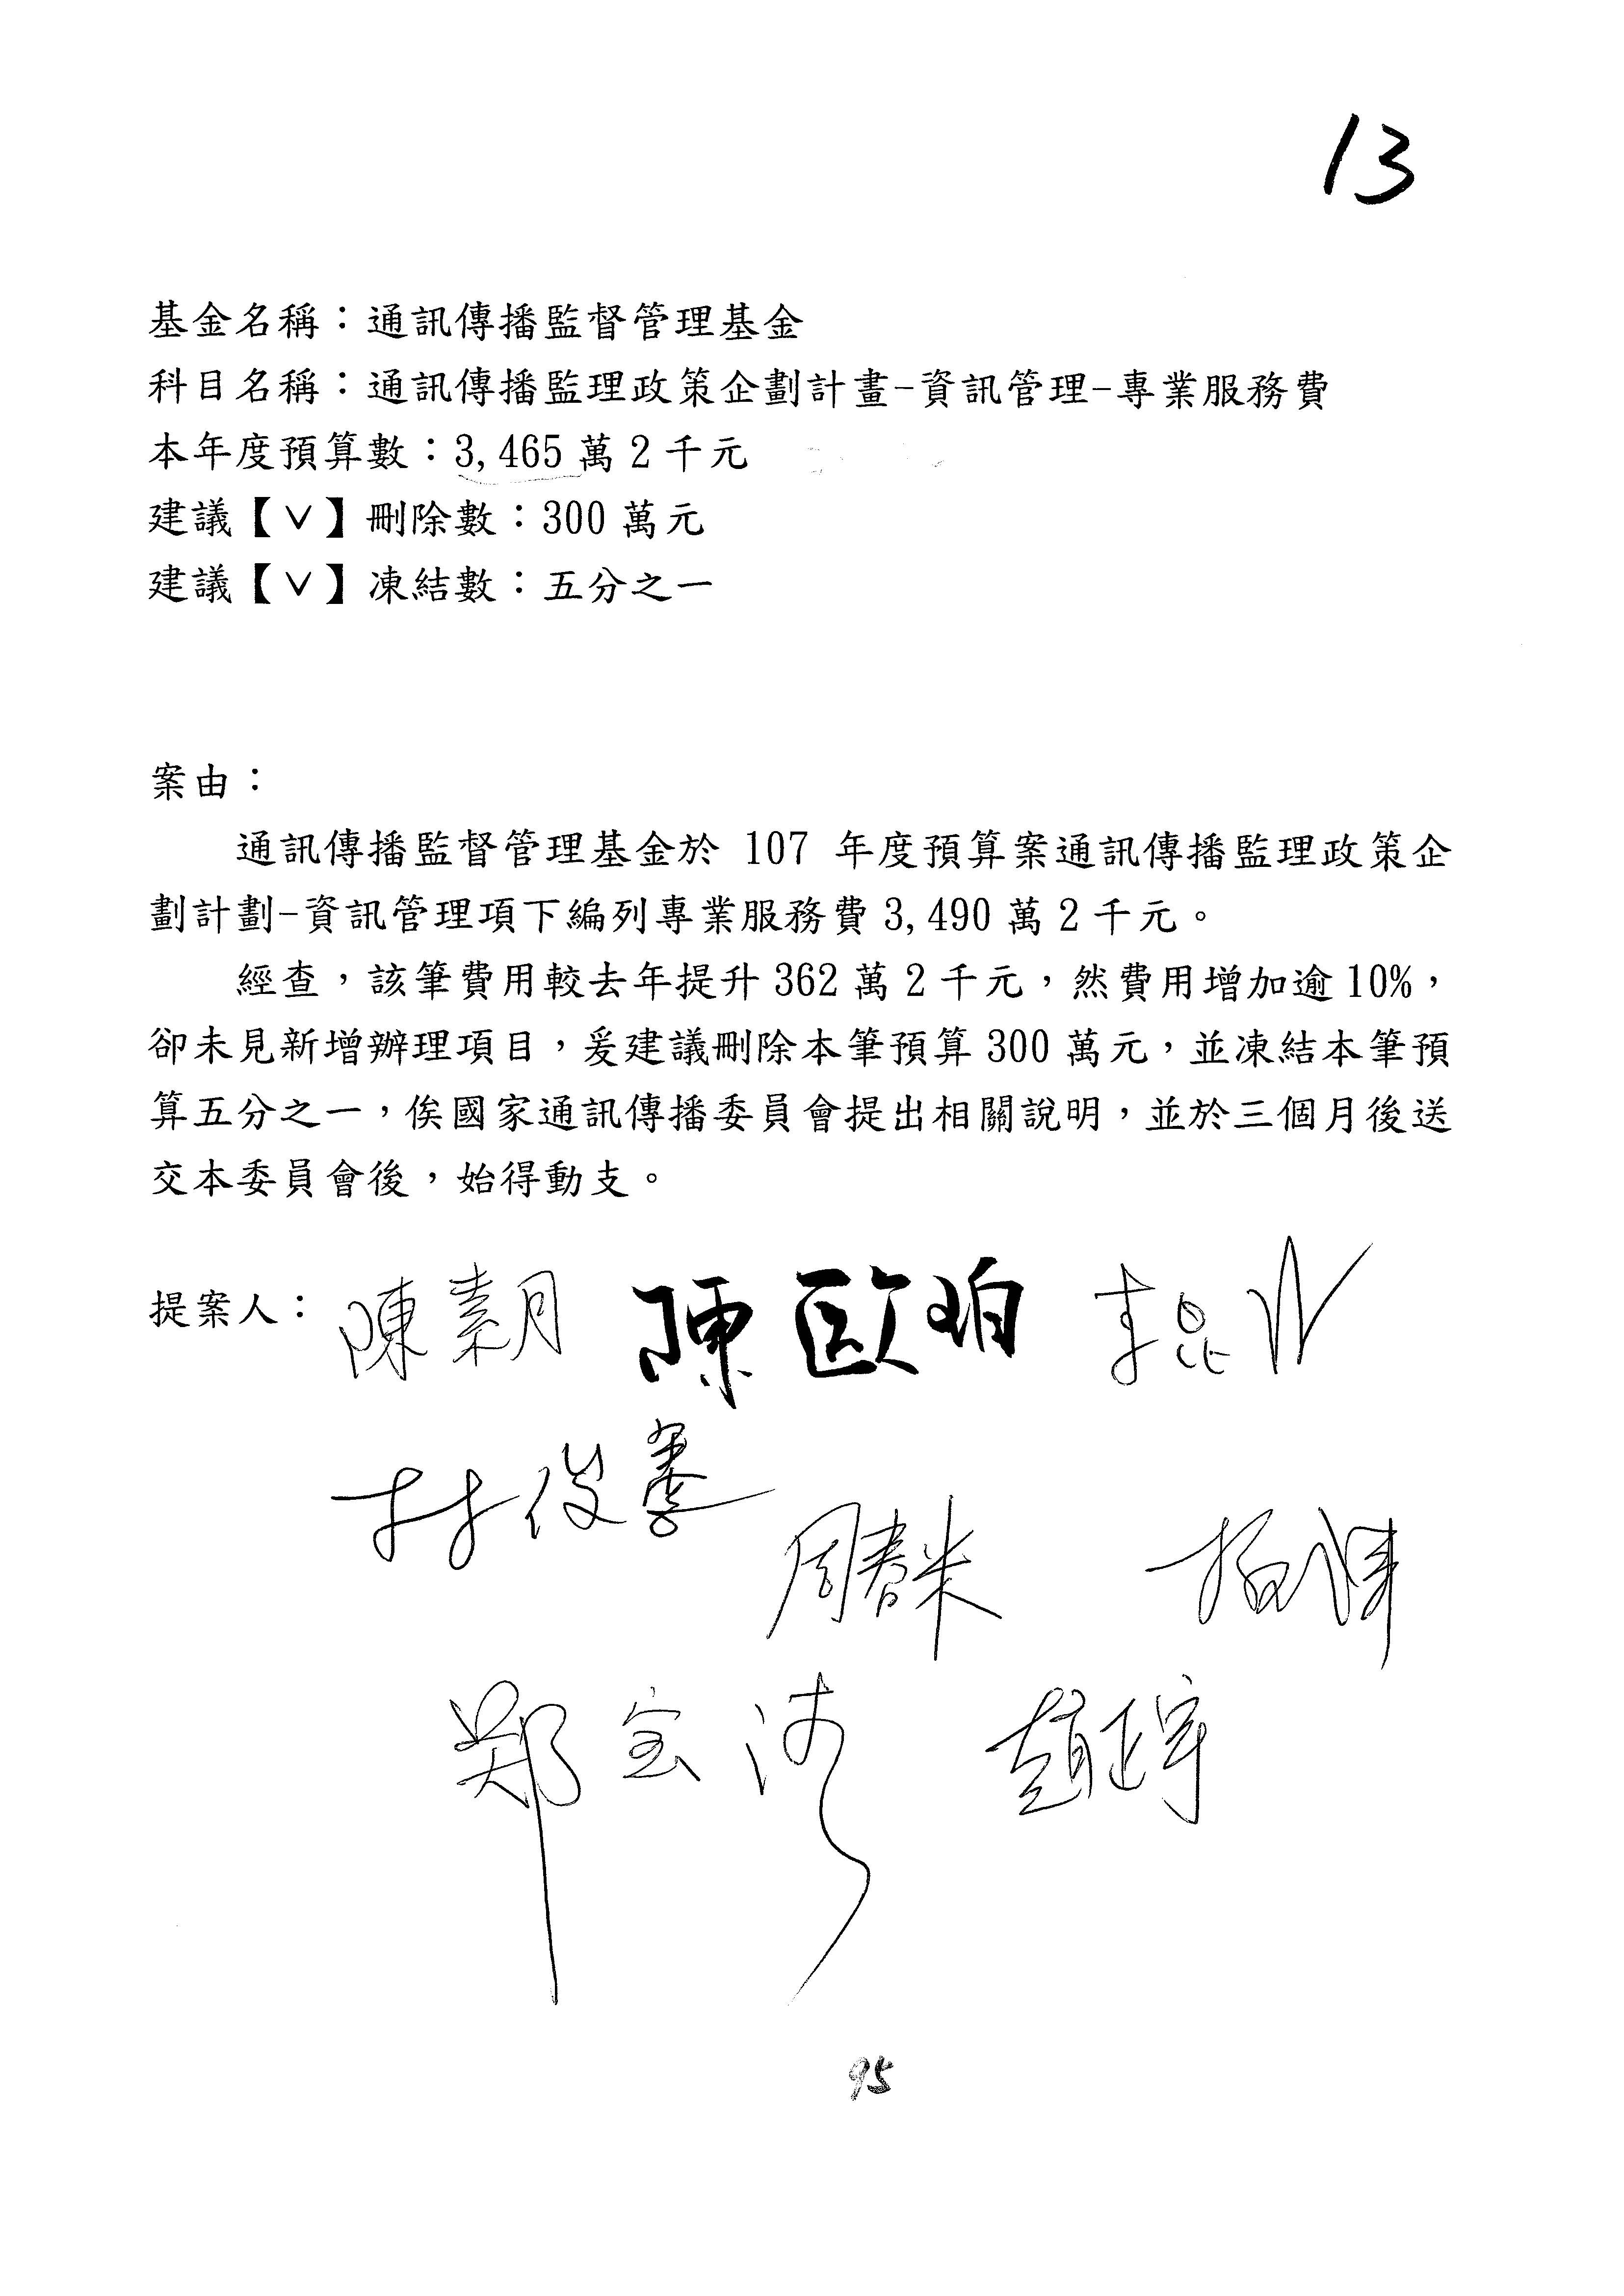 13
基金名稱：通訊傳播監督管理基金
科目名稱：通訊傳播監理政策企劃計畫-資訊管理-專業服務費
本年度預算數：3,465萬2千元
建議【∨】刪除數：300萬元
建議【∨】凍結數：五分之一
案由：
通訊傳播監督管理基金於 107 年度預算案通訊傳播監理政策企
劃計劃-資訊管理項下編列專業服務費3,490萬2千元。
經查，該筆費用較去年提升362萬2千元，然費用增加逾10%，
卻未見新增辦理項目，爰建議刪除本筆預算300萬元，並凍結本筆預
算五分之一，俟國家通訊傳播委員會提出相關說明，並於三個月後送
交本委員會後，始得動支。
提案人：陳素月 陳歐珀 李昆澤
林俊憲
周春米
鄭宝清 趙正宇
95